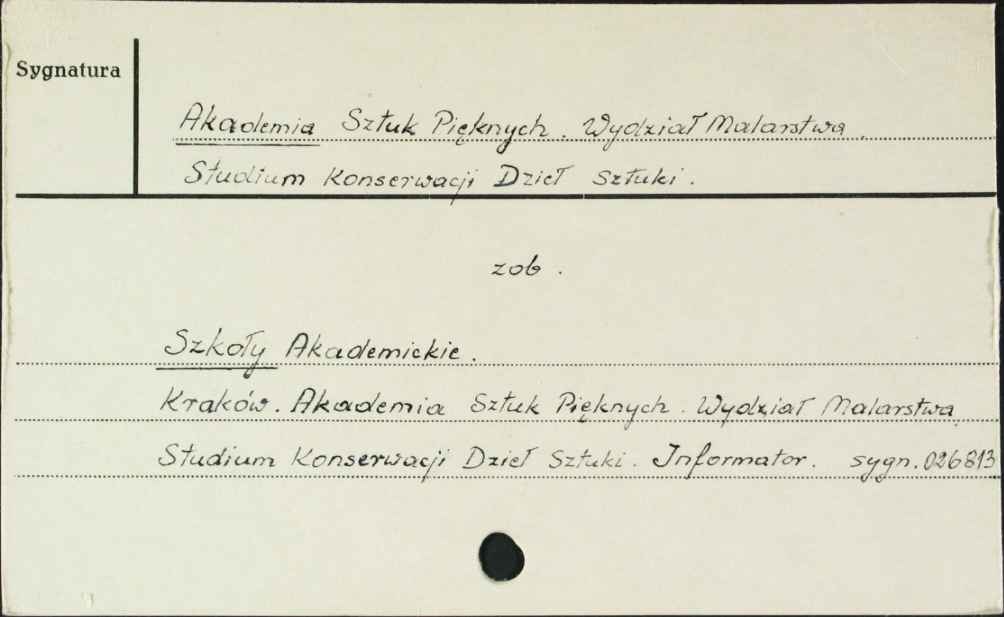 Sygnatura
Akademia Sztuk Pięknych. Wydział Malarstwa.
Studium Konserwacji Dzieł Sztuki.
zob.
Szkoły Akademickie.
Kraków. Akademia Sztuk Pięknych. Wydział Malarstwa.
Studium Konserwacji Dzieł Sztuki. Informator. sygn. 026813